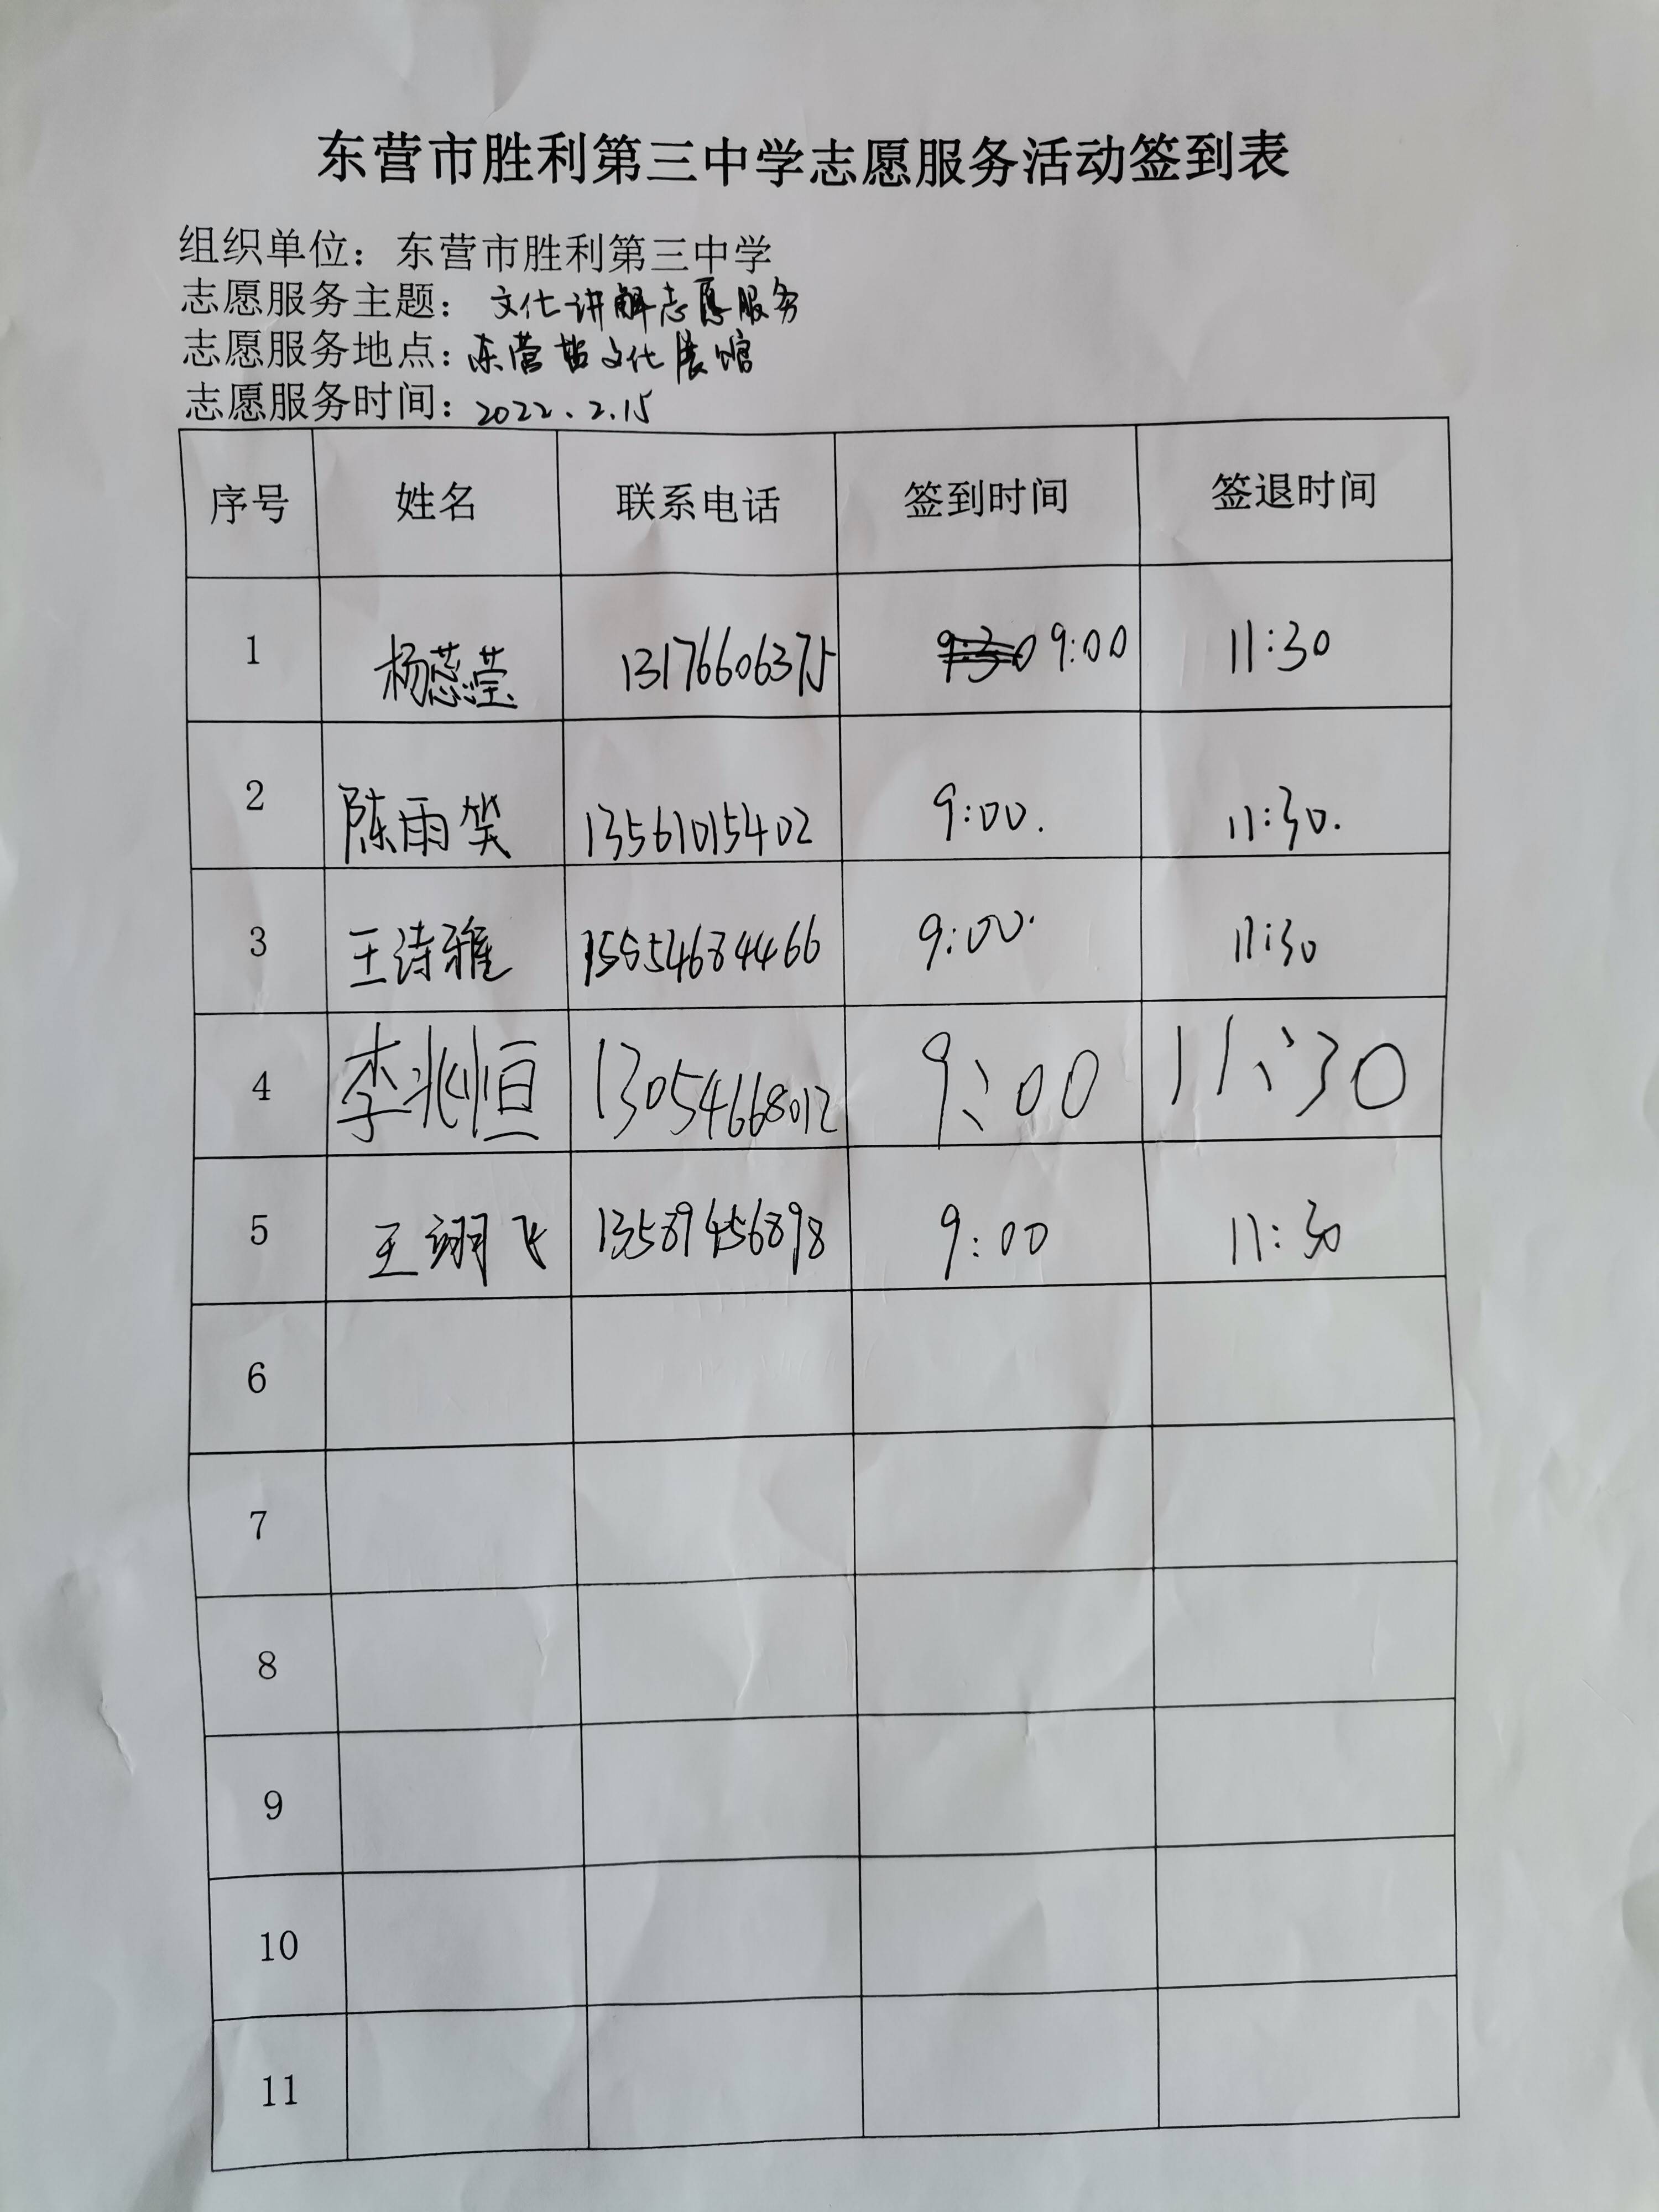 东营市胜利第三中学志愿服务活动签到表
组织单位：东营市胜利第三中学
志愿服务主题：文化讲解志愿服务
志愿服务地点：东营 文化展馆
志愿服务时间：2022.2.15
序号 姓名 联系电话 签到时间 签退时间
1 杨蕊莹 13176606375 9:30 9:00 11:30
2 陈雨笑 13561015402 9:00. 11:30.
3 王诗雅 15554684466 9:00. 11:30
4 李兆恒 13054668012 9:00 11:30
5 王翊飞 13589456898 9:00 11:30
6
7
8
9
10
11